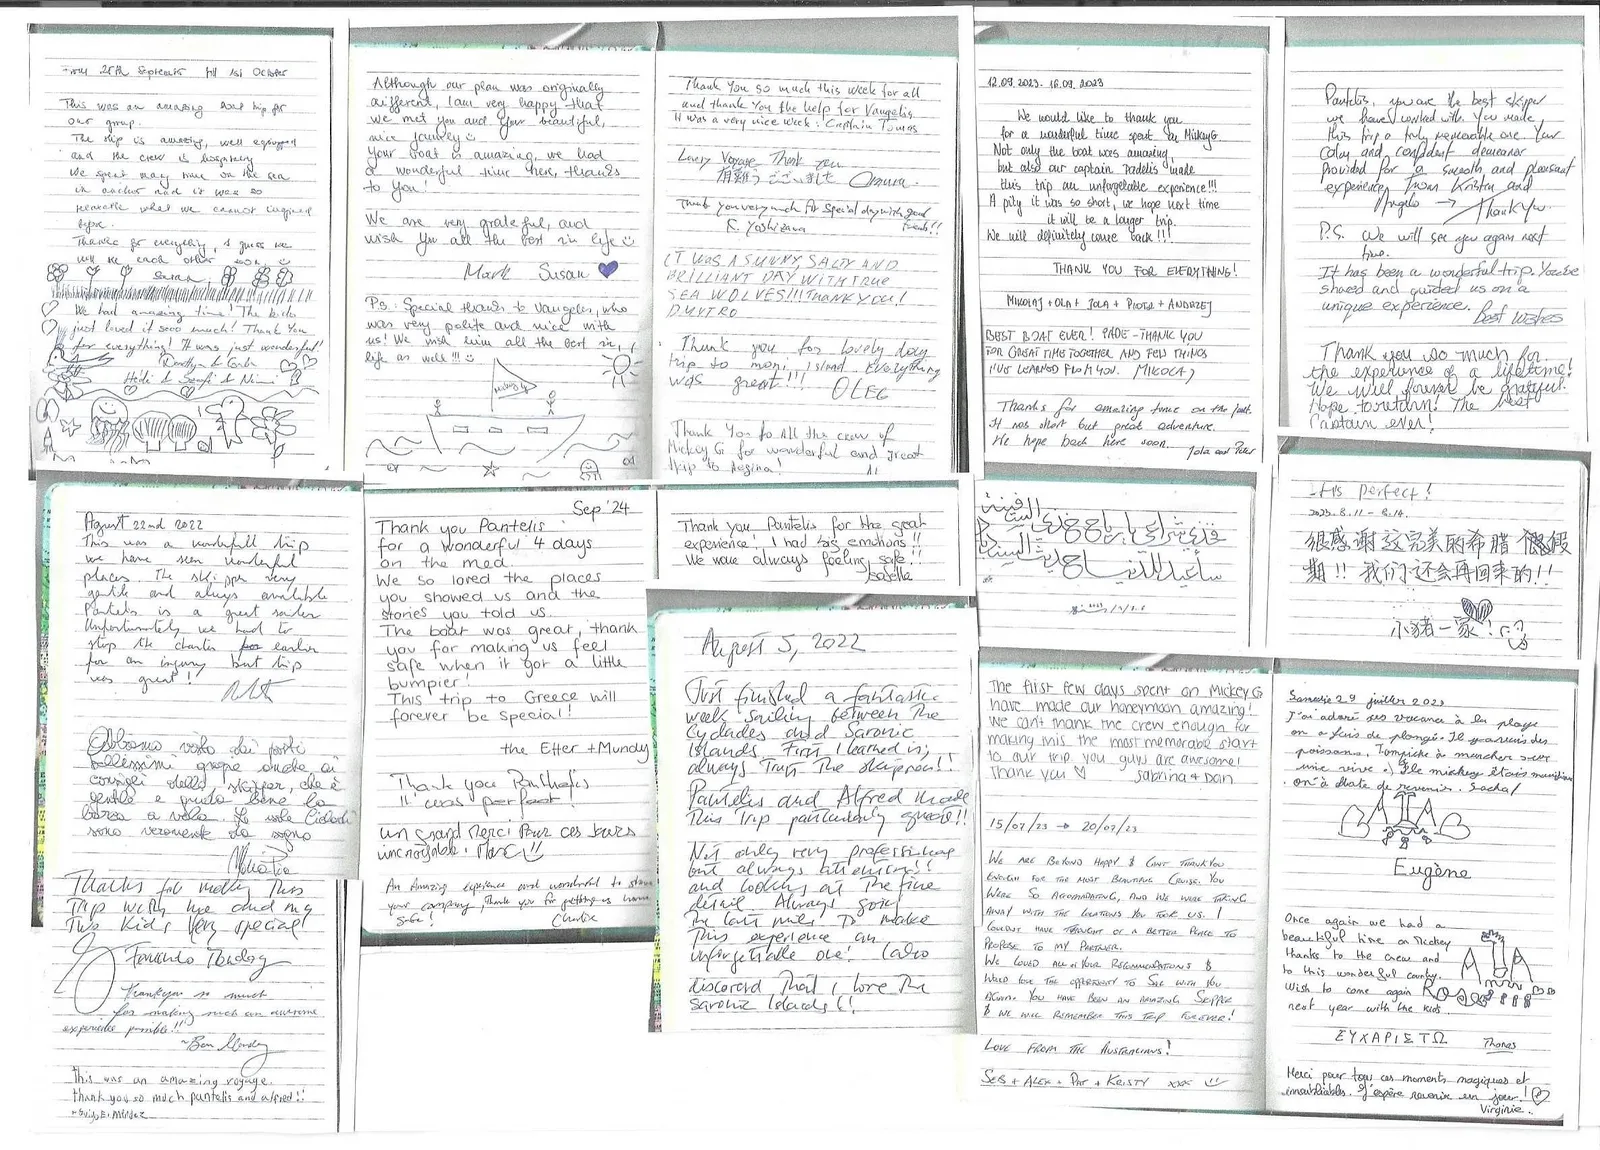 From 25th September till 1st October
This was an amazing boat trip for
our group.
The ship is amazing, well equipped
and the crew is
We spent many time on the sea
in anchor and it was so
what we cannot
before.
Thanks for everything, I guess we
will see each other soon.
We had amazing time! The kids
just loved it sooo much! Thank You
for everything! It was just wonderful!
Heidi &
Although our plan was originally
different, I am very happy that
we met you and your beautiful,
nice family
Your boat is amazing, we had
a wonderful time here, thanks
to you!
We are very grateful, and
wish you all the best in life
Mark Susan
P.S: Special thanks to Vangelis, who
was very polite and nice with
us! We wish him all the best in
life as well!!!
Mickey G
Thank You so much this week for all
and thank You the help for Vangelis
It was a very nice week: Captain Tomas
Lovely Voyage Thank you
有難うございました
Thank you very much for special day with good
friends!!
K. Yoshizawa
IT WAS A SUNNY SALTY AND
BRILLIANT DAY WITH TRUE
SEA WOLVES!!! THANK YOU!
DMYTRO
Thank you for lovely day
trip to moni island. Everything
was great!!!
OLEG
Thank You to All the crew of
Mickey G for wonderful and great
trip to Aegina!
12.09.2023. 16.09.2023
We would like to thank you
for a wonderful time spent on MickeyG.
Not only the boat was amazing,
but also our captain Padelis made
this trip an unforgetable experience!!!
A pity it was so short, we hope next time
it will be a longer trip.
We will definitely come back!!!
THANK YOU FOR EVERYTHING!
MIKOLAJ + OLA + JOLA + PIOTR + ANDRZEJ
BEST BOAT EVER! PADE - THANK YOU
FOR GREAT TIME TOGETHER AND FEW THINGS
I'VE LEARNED FROM YOU. MIKOLAJ
Thanks for amazing time on the boat.
It was short but great adventure.
We hope back here soon.
Jola and Piotr
Pantelis, you are the best skipper
we have worked with. You made
this trip a truly memorable one. Your
calm and confident demeanor
provided for a smooth and pleasant
experience. From Kristin and
Angelo → Thank You
P.S. We will see you again next
time.
It has been a wonderful trip. You've
shared and guided us on a
unique experience. Best Wishes
Thank you so much for
the experience of a lifetime!
We will forever be grateful.
Hope to return! The best
Captain ever!
August 22nd 2022
This was a wonderfull trip
we have seen wonderful
places. The skipper very
gentle and always available
Pantelis is a great sailor
Unfortunately we had to
stop the charter earlier
for an injury but trip
was great!
Abbiamo visto dei posti
bellissimi grazie anche ai
consigli dello skipper, che è
gentile e guida bene la
barca a vela. Le isole Cicladi
sono veramente da sogno
Sep '24
Thank you Pantelis
for a wonderful 4 days
on the med.
We so loved the places
you showed us and the
stories you told us.
The boat was great, thank
you for making us feel
safe when it got a little
bumpier!
This trip to Greece will
forever be special!
the Etter + Mundy
Thank you Panthelis
It was perfect!
Un grand merci pour ces jours
incroyable. Marc
An Amazing experience and wonderful to share
your company, Thank you for getting us home
safe!
Charlie
Thank you Pantelis for the great
experience! I had big emotions!!
We were always feeling safe!!
Isabelle
August 5, 2022
Just finished a fantastic
week sailing between the
Cyclades and Saronic
Islands. First I learned is;
always trust the skipper!!
Pantelis and Alfred made
this trip particularly good!!
Not only very professional
but always attentious!
and looking at the fine
detail. Always going
the last mile to make
this experience an
unforgettable one! (also
discovered that I love the
Saronic Islands!!
It's perfect!
2023. 8.11 - 8.14.
很感谢这完美的希腊假
期!! 我们还会再回来的!!
小猪一家!
The first few days spent on MickeyG
have made our honeymoon amazing!
We can't thank the crew enough for
making this the most memorable start
to our trip. You guys are awesome!
Thank you ♡ Sabrina + Dan
15/07/23 → 20/07/23
WE ARE BEYOND HAPPY & CAN'T THANK YOU
ENOUGH FOR THE MOST BEAUTIFUL CRUISE. YOU
WERE SO ACCOMODATING, AND WE WERE TAKEN
AWAY WITH THE LOCATIONS YOU TOOK US. I
COULDN'T HAVE THOUGHT OF A BETTER PLACE TO
PROPOSE TO MY PARTNER.
WE LOVED ALL OF YOUR RECOMMENDATIONS &
WOULD LOVE THE OPPORTUNITY TO SAIL WITH YOU
AGAIN. YOU HAVE BEEN AN AMAZING SKIPPER
& WE WILL REMEMBER THIS TRIP FOREVER!
LOVE FROM THE AUSTRALIANS!
SEB + ALEX + PAT + KRISTY xxx
Samedie 29 juillet 2023
J'ai adoré ses vacance à la plage
on a fais de plongé. Il y avais des
poissons.
on a hate de revenir. Sacha
Eugène
Once again we had a
beautiful time on Mickey
thanks to the crew and
to this wonderful country.
Wish to come again
next year with the kids.
ΕΥΧΑΡΙΣΤΩ Thomas
Merci pour tous ces moments magiques et
inoubliables. J'espère revenir un jour!
Virginie.
Thanks for making this
Trip with me and my
Two kids very special!
Fernando
Thank you so much
for making such an awesome
experience possible!!
~Ben
This was an amazing voyage.
thank you so much pantelis and alfred!!